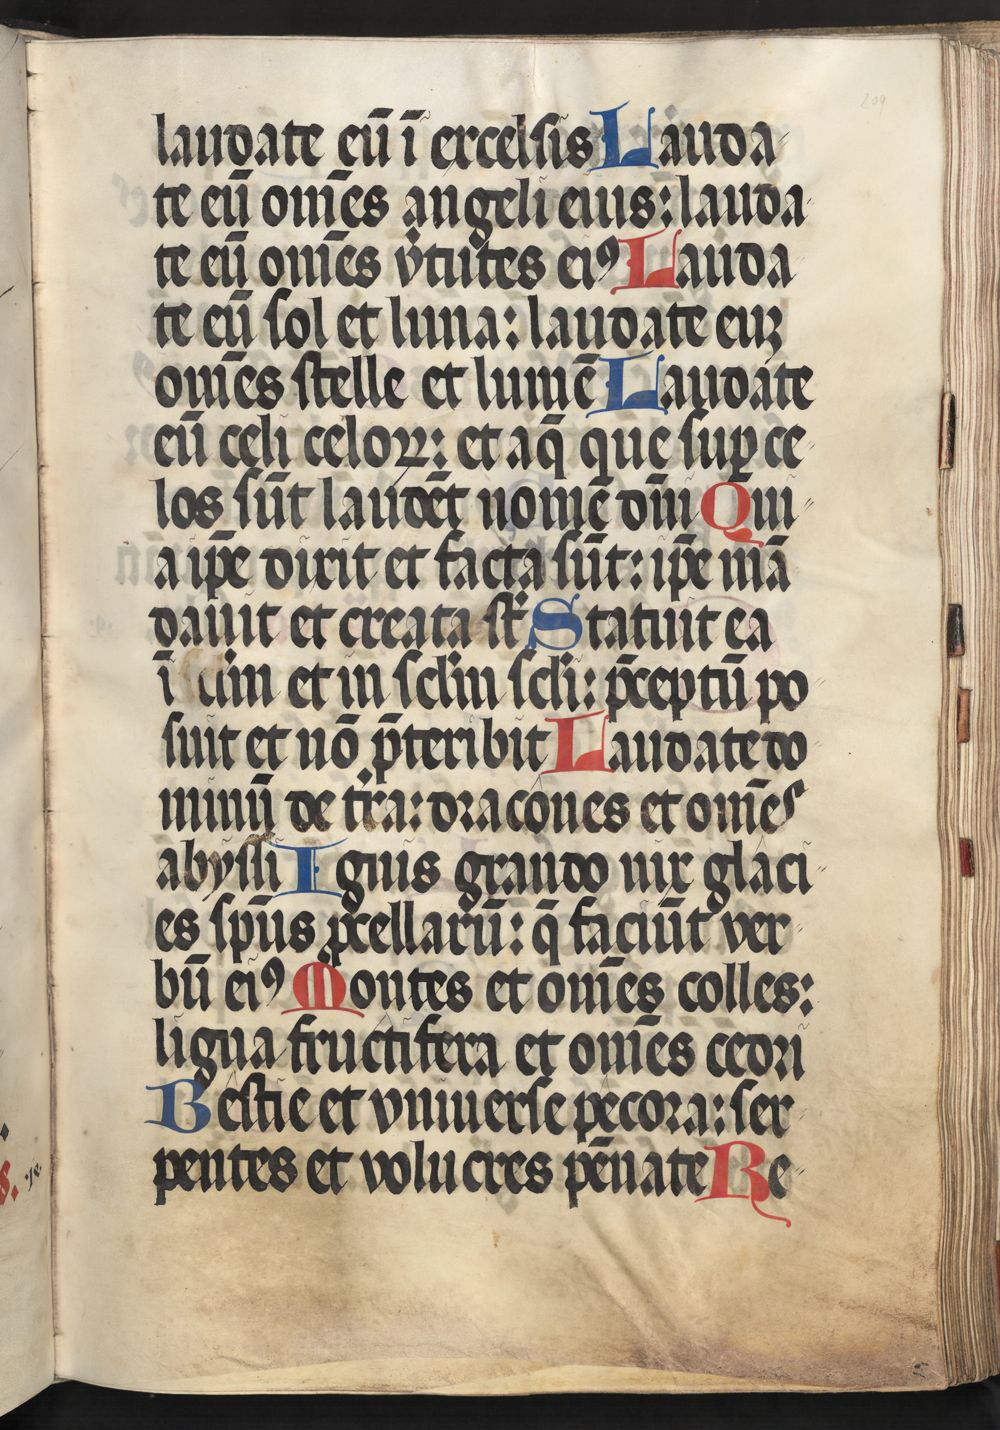 laudate eū ī excelsis Lauda
te eū om̄es angeli eius: lauda
te eū om̄es v̾tutes eiꝰ Lauda
te eū sol et luna: laudate euꝫ
om̄es stelle et lumē Laudate
eū celi celoꝝ: et aq̄ que suꝑ ce
los sūt laudēt nomē dn̄i Qui
a ip̄e dixit et facta sūt: ip̄e mā
dauit et creata st̄ Statuit ea
ī et in sclm̄ scli: p̄ceptū po
suit et nō p̄teribit Laudate do
minū de tr̾a: dracones et om̄es
abyssi Ignis grando nix glaci
es sp̄us ꝓcellarū: q̄ faciūt ver
bū eiꝰ Montes et om̄es colles:
ligna fructifera et om̄es cedri
Bestie et vniuerse pecora: ser
pentes et volucres pēnate Re
209